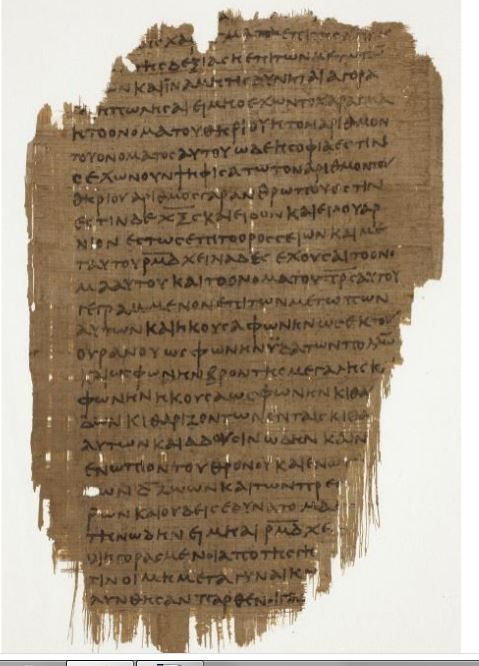 ΤΗϹ ΔΕΞΙΑϹ Η ΕΠΙ ΤΩΝ ΜΕΤΩ
ΩΝ ΚΑΙ ΙΝΑ ΜΗ ΤΙϹ ΔΥΝΗΤΑΙ ΑΓΟΡΑ
Η ΠΩΛΗϹΑΙ ΕΙ ΜΗ Ο ΕΧΩΝ ΤΟ ΧΑΡΑΓΜΑ
Η ΤΟ ΟΝΟΜΑ ΤΟΥ ΘΗΡΙΟΥ Η ΤΟΝ ΑΡΙΘΜΟΝ
ΤΟΥ ΟΝΟΜΑΤΟϹ ΑΥΤΟΥ ΩΔΕ Η ϹΟΦΙΑ ΕϹΤΙΝ
Ο ΕΧΩΝ ΟΥΝ ΨΗΦΙϹΑΤΩ ΤΟΝ ΑΡΙΘΜΟΝ ΤΟΥ
ΘΗΡΙΟΥ ΑΡΙΘΜΟϹ ΓΑΡ ΑΝΘΡΩΠΟΥ ΕϹΤΙΝ
ΕϹΤΙΝ ΔΕ Χ̅Ξ̅Ϛ̅ ΚΑΙ ΕΙΔΟΝ ΚΑΙ ΕΙΔΟΥ ΑΡ
ΝΙΟΝ ΕϹΤΩϹ ΕΠΙ ΤΟ ΟΡΟϹ ϹΕΙΩΝ ΚΑΙ ΜΕ
Τ ΑΥΤΟΥ Ρ̅Μ̅Δ̅ ΧΕΙΛΙΑΔΕϹ ΕΧΟΥϹΑΙ ΤΟ ΟΝΟ
ΜΑ ΑΥΤΟΥ ΚΑΙ ΤΟ ΟΝΟΜΑ ΤΟΥ Π̅Ρ̅Ϲ̅ ΑΥΤΟΥ
ΓΕΓΡΑΜΜΕΝΟΝ ΕΠΙ ΤΩΝ ΜΕΤΩΠΩΝ
ΑΥΤΩΝ ΚΑΙ ΗΚΟΥϹΑ ΦΩΝΗΝ ΩϹ ΕΚ ΤΟΥ
ΟΥΡΑΝΟΥ ΩϹ ΦΩΝΗΝ ΫΔΑΤΩΝ ΠΟΛΛΩ
ΚΑΙ ΩϹ ΦΩΝΗΝ ΒΡΟΝΤΗϹ ΜΕΓΑΛΗϹ Κ
ΦΩΝΗΝ ΗΚΟΥϹΑ ΩϹ ΦΩΝΗΝ ΚΙΘΑ
ΔΩΝ ΚΙΘΑΡΙΖΟΝΤΩΝ ΕΝ ΤΑΙϹ ΚΙΘΑ
ΑΥΤΩΝ ΚΑΙ ΑΔΟΥϹΙΝ ΩΔΗΝ ΚΑΙΝ
ΕΝΩΠΙΟΝ ΤΟΥ ΘΡΟΝΟΥ ΚΑΙ ΕΝΩ
ΩΝ Δ̅ ΖΩΩΝ ΚΑΙ ΤΩΝ ΠΡΕ
ΡΩΝ ΚΑΙ ΟΥΔΕΙϹ ΕΔΥΝΑΤΟ ΜΑ
ΤΗΝ ΩΔΗΝ ΕΙ ΜΗ ΑΙ Ρ̅Μ̅Δ̅ ΧΕ
ΟΙ ΗΓΟΡΑϹΜΕΝΟΙ ΑΠΟ ΤΗϹ ΓΗ
ΤΙΝ ΟΙ ΜΗ ΜΕΤΑ ΓΥΝΑΙΚ
ΛΥΝΘΗϹΑΝ ΠΑΡΘΕΝΟΙ